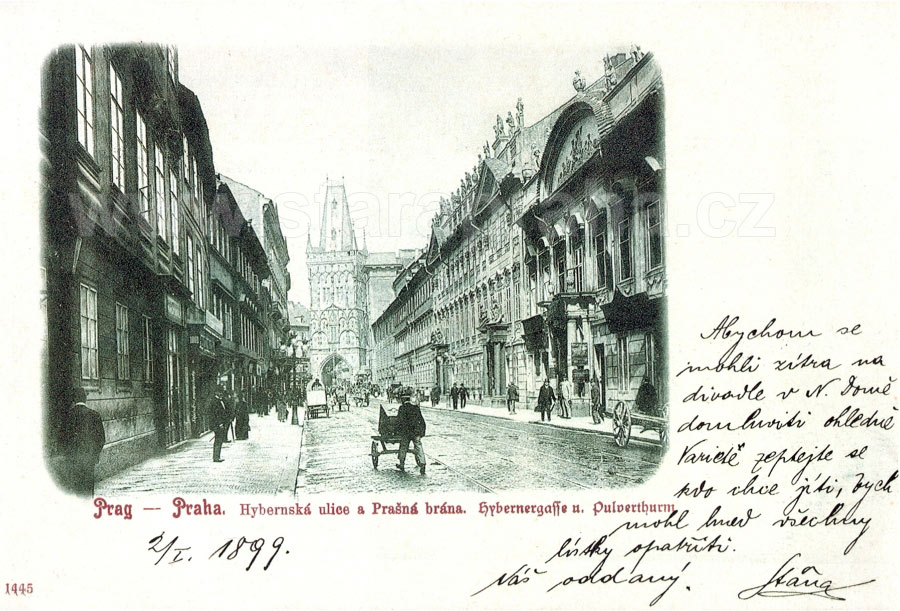 www.starapraha.cz
Abychom se
mohli zítra na
divadle v N. Domě
domluviti ohledně
Varieté zeptejte se
kdo chce jíti, bych
mohl hned všechny
lístky opatřiti.
Váš oddaný.
Stáňa
Prag — Praha. Hybernská ulice a Prašná brána. Hybernergasse u. Pulverthurm.
2/I. 1899.
1445